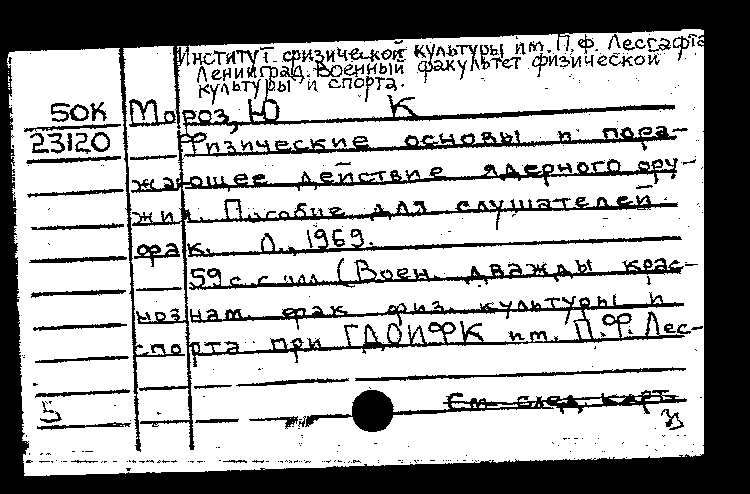 Институт физической культуры им. П.Ф. Лесгафта
Ленинград. Военный факультет физической
культуры и спорта.
50К Мороз, Ю К
23120 Физические основы и пора-
жающее действие ядерного ору-
жия. Пособие для слушателей
фак. Л., 1969.
59 с. с илл. (Воен. дважды крас-
нознам. фак физ. культуры и
спорта при ГДОИФК им. П.Ф. Лес-
См. след. карт.
5